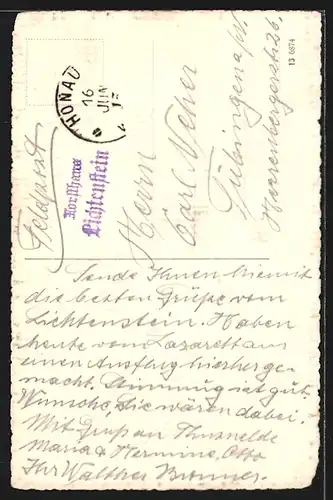 Feldpost
HONAU
16
JUN
Forsthaus
Lichtenstein
Herrn
Carl Neher
Tübingen a/N.
Herrenbergerstr. 26.
13 6974
Sende Ihnen hiermit
die besten Grüße vom
Lichtenstein. Haben
heute vom Lazarett aus
einen Ausflug hierher ge-
macht. Stimmung ist gut.
Wünsche, Sie wären dabei.
Mit Gruß an Thusnelde
Maria & Hermine, Otto
Ihr Walther Bronner.